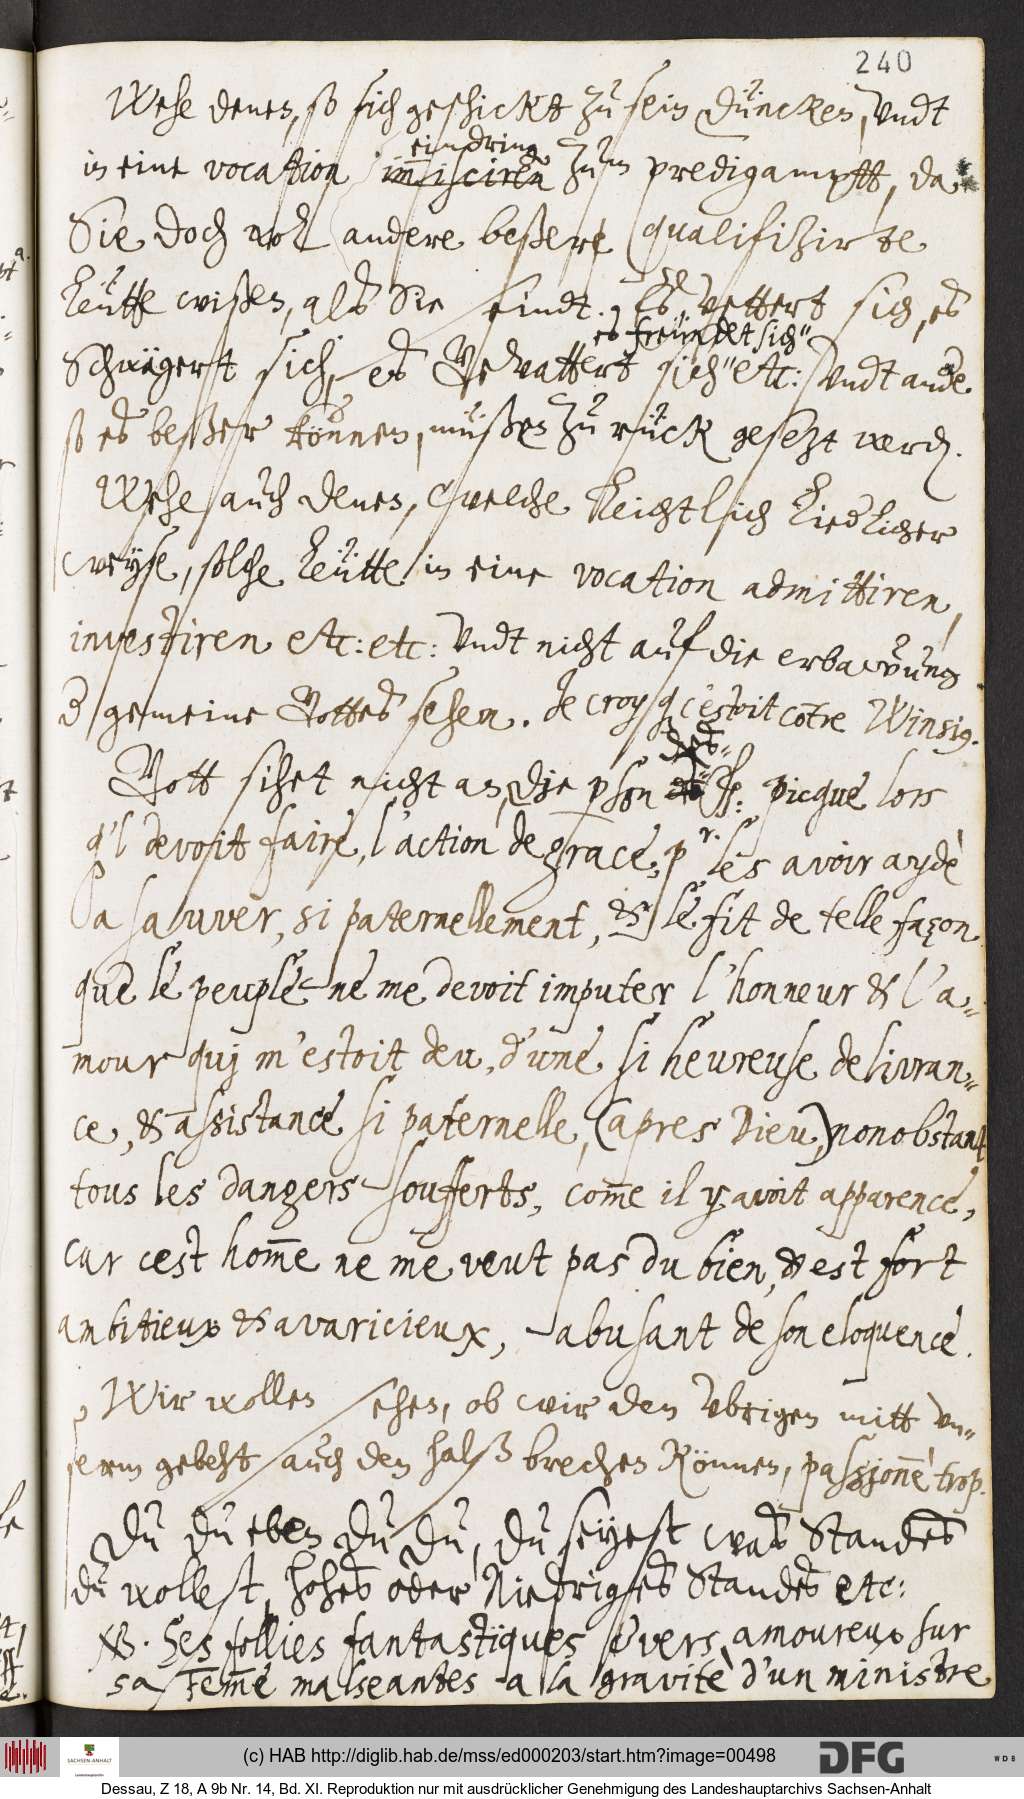 240
Wehe denen, so sich geschickt zu sein düncken, undt
in eine vocation eindring zum predigampt, da
Sie doch wol andere beßere qualifizirte
Leütte wißen, als Sie seindt. Es vettert sich, es
es freündet sich"
Schwägert sich, es Gevattert sich" etc: undt andre
so es beßer können, müßen zu rück gesezt werd.
Wehe auch denen, welche Leichtlich Liederlicher
weyse, solche Leütte in eine vocation admittiren,
investiren etc: etc: undt nicht auf die erbawung
d gemeine Gottes sehen. Je croy q c'estoit cõtre Winsig.
Gott sihet nicht an, die pson picquè lors
q'l devoit faire, l'action de grace, pr. les avoir aydè
a sauver, si paternellement, & le fit de telle façon
que le peuple ne me devoit imputer l'honneur & l'a=
mour quj m'estoit deu, d'une si heureuse delivran=
ce, & assistance si paternelle, (apres Dieu,) nonobstant
tous les dangers soufferts, com̃e il y avoit apparence,
car cest hom̃e ne me veut pas du bien, & est fort
ambitieux & avaricieux, abusant de son eloquence.
Wir wollen sehen, ob wir dem ubrigen mitt un=
serm gebeht auch den halß brechen können, passionnè trop.
Du Du eben Du Du, Du seyest was Standes
du wollest, hohes oder Niedriges Standes etc:
NB. Ses follies fantastiques, & vers amoureux sur
sa Fem̃e malseantes a la gravitè d'un ministre
(c) HAB http://diglib.hab.de/mss/ed000203/start.htm?image=00498
SACHSEN-ANHALT
DFG
WDB
Dessau, Z 18, A 9b Nr. 14, Bd. XI. Reproduktion nur mit ausdrücklicher Genehmigung des Landeshauptarchivs Sachsen-Anhalt